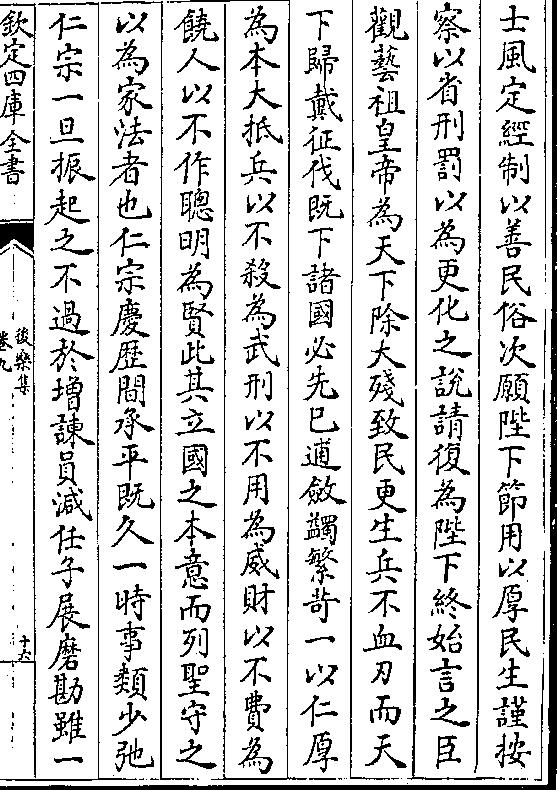 士風定經制以善民俗次願陛下節用以厚民生謹按
察以省刑罰以為更化之說請復為陛下終始言之臣
觀藝祖皇帝為天下除大殘致民更生兵不血刃而天
下歸戴征伐既下諸國必先已逋斂蠲繁苛一以仁厚
為本大抵兵以不殺為武刑以不用為威財以不費為
饒人以不作聰明為賢此其立國之本意而列聖守之
以為家法者也仁宗慶歴間承平既久一時事類少弛
仁宗一旦振起之不過於增諫員減任子展磨勘雖一
欽定四庫全書
後樂集
卷九
十六